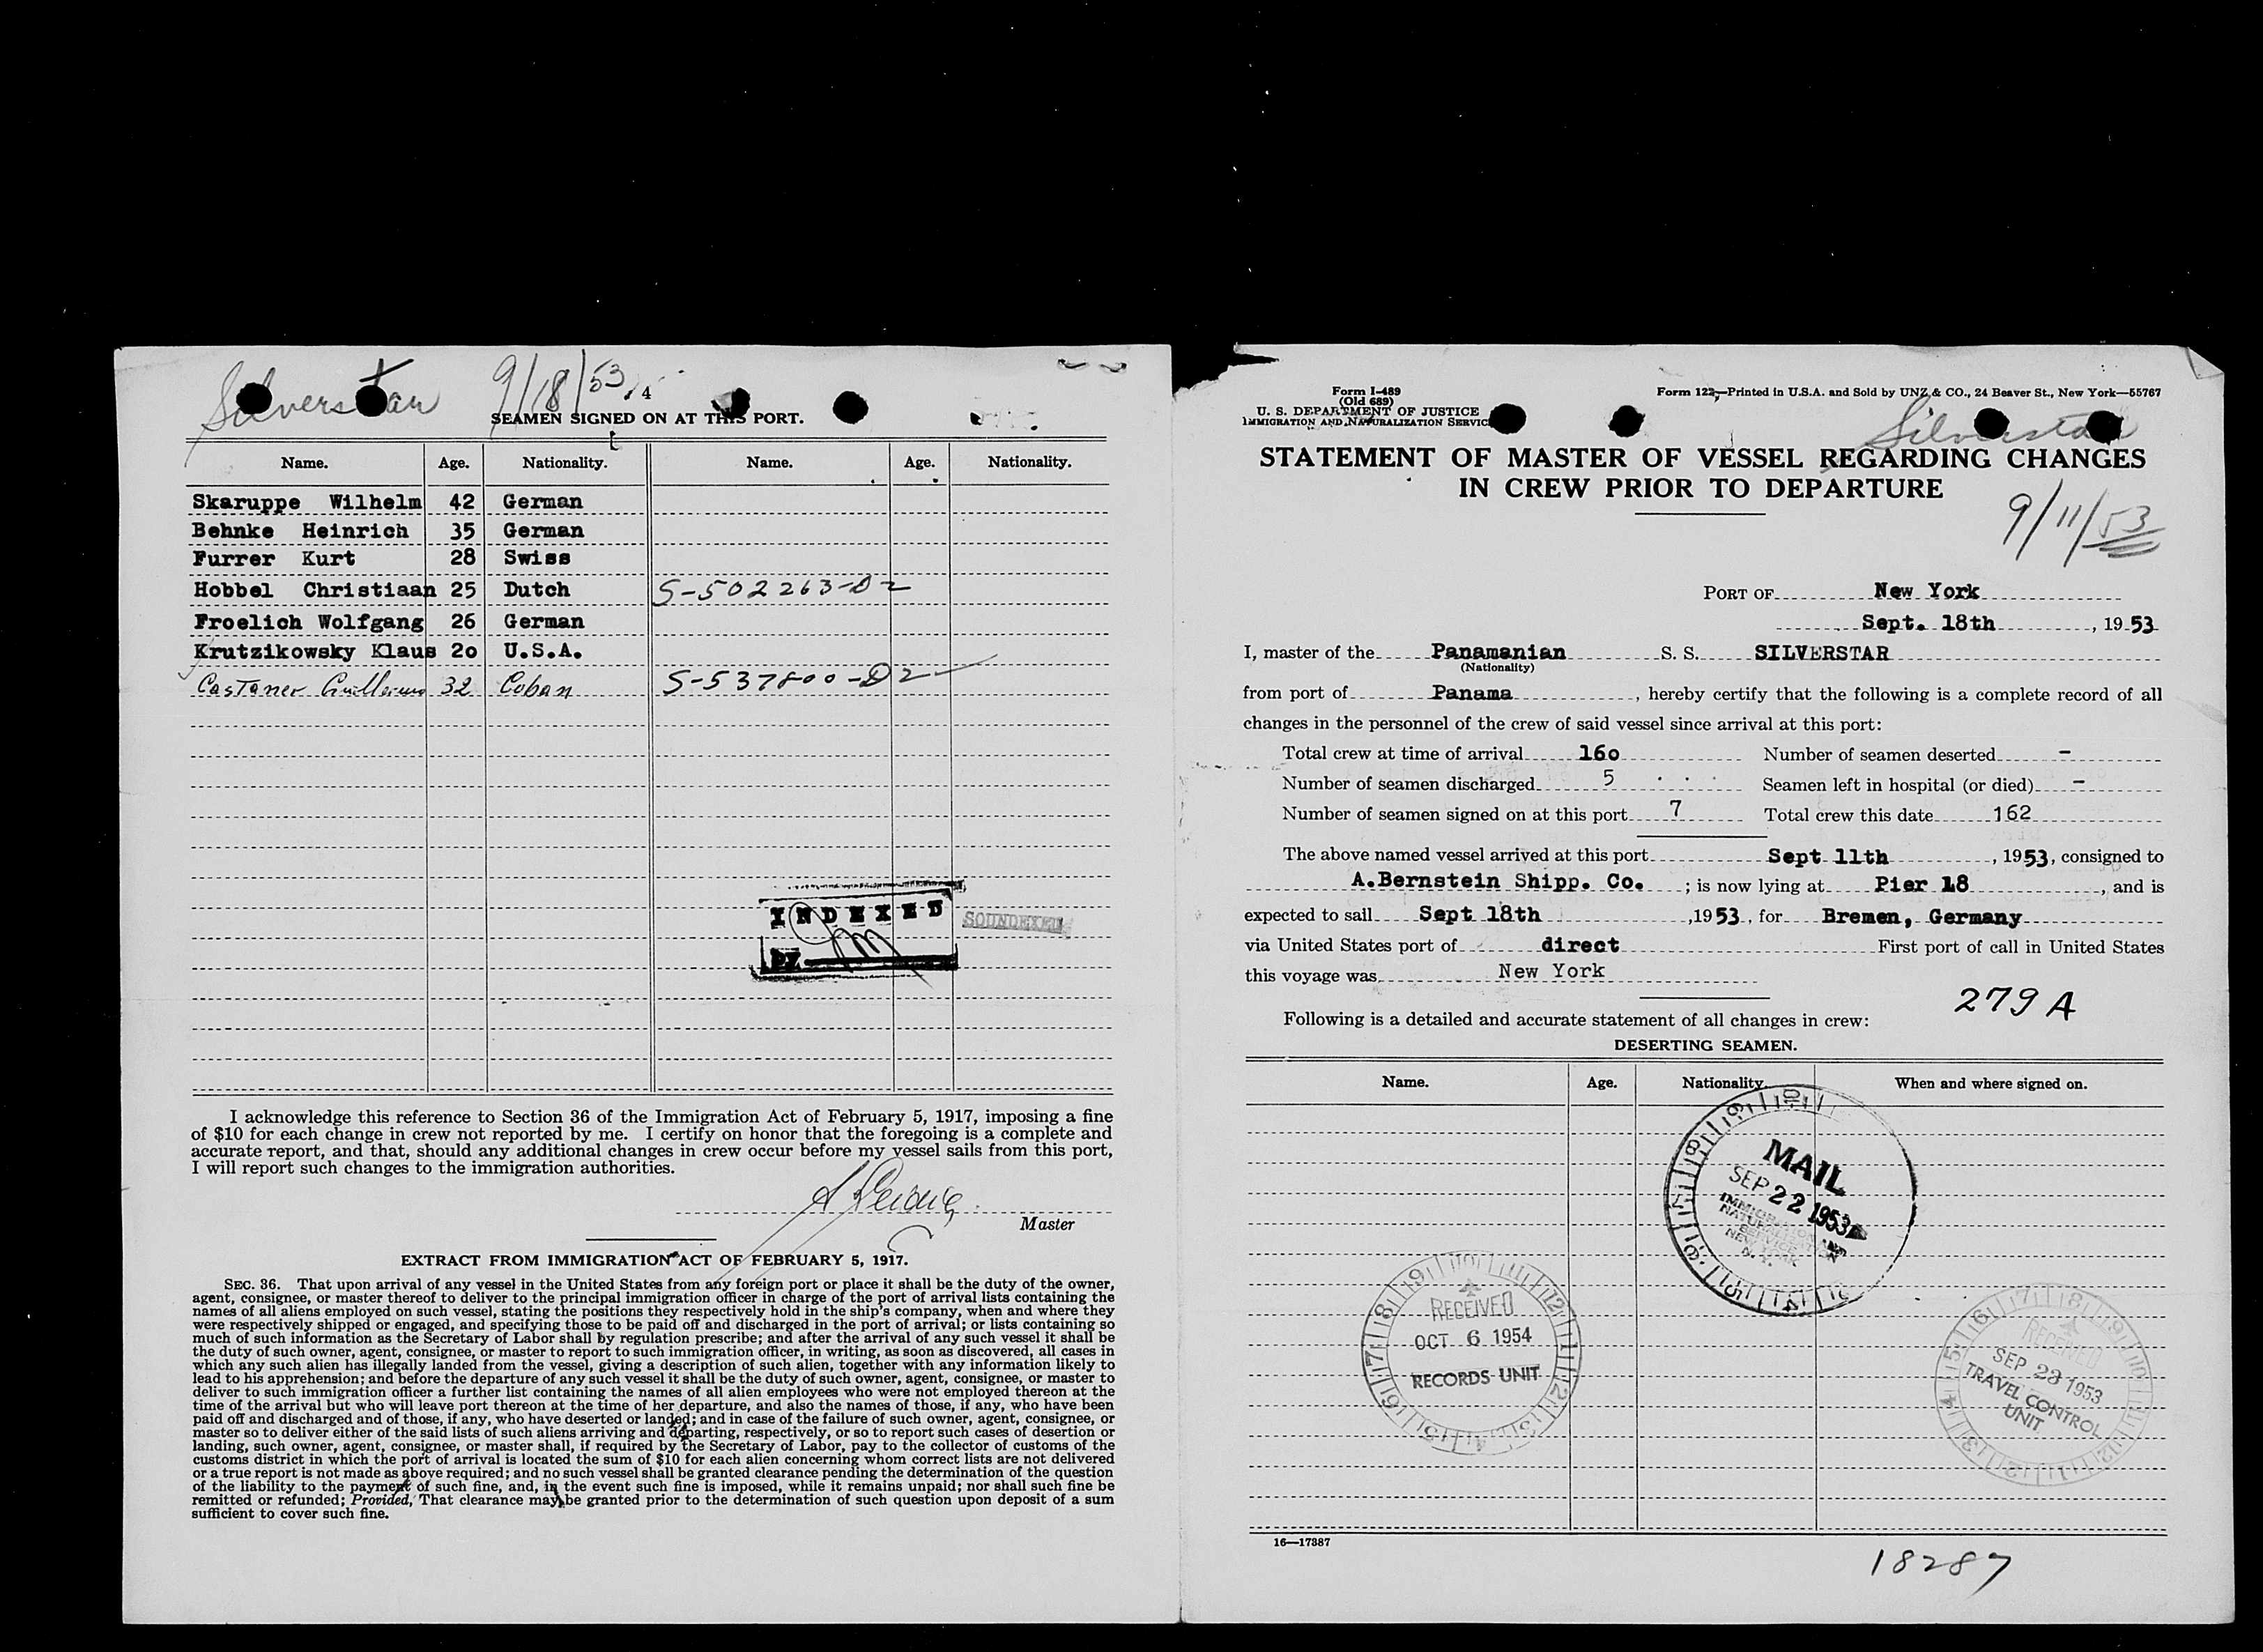 Silverstar 9/18/53
4
SEAMEN SIGNED ON AT THIS PORT.
Name. Age. Nationality. Name. Age. Nationality.
Skaruppe Wilhelm 42 German
Behnke Heinrich 35 German
Furrer Kurt 28 Swiss
Hobbel Christiaan 25 Dutch S-502263-D2
Froelich Wolfgang 26 German
Krutzikowsky Klaus 2o U.S.A.
Castaner Guillermo 32 Coban S-537800-D2
INDEXED
BY
SOUNDEXED
I acknowledge this reference to Section 36 of the Immigration Act of February 5, 1917, imposing a fine
of $10 for each change in crew not reported by me. I certify on honor that the foregoing is a complete and
accurate report, and that, should any additional changes in crew occur before my vessel sails from this port,
I will report such changes to the immigration authorities.
Master
EXTRACT FROM IMMIGRATION ACT OF FEBRUARY 5, 1917.
SEC. 36. That upon arrival of any vessel in the United States from any foreign port or place it shall be the duty of the owner,
agent, consignee, or master thereof to deliver to the principal immigration officer in charge of the port of arrival lists containing the
names of all aliens employed on such vessel, stating the positions they respectively hold in the ship's company, when and where they
were respectively shipped or engaged, and specifying those to be paid off and discharged in the port of arrival; or lists containing so
much of such information as the Secretary of Labor shall by regulation prescribe; and after the arrival of any such vessel it shall be
the duty of such owner, agent, consignee, or master to report to such immigration officer, in writing, as soon as discovered, all cases in
which any such alien has illegally landed from the vessel, giving a description of such alien, together with any information likely to
lead to his apprehension; and before the departure of any such vessel it shall be the duty of such owner, agent, consignee, or master to
deliver to such immigration officer a further list containing the names of all alien employees who were not employed thereon at the
time of the arrival but who will leave port thereon at the time of her departure, and also the names of those, if any, who have been
paid off and discharged and of those, if any, who have deserted or landed; and in case of the failure of such owner, agent, consignee, or
master so to deliver either of the said lists of such aliens arriving and departing, respectively, or so to report such cases of desertion or
landing, such owner, agent, consignee, or master shall, if required by the Secretary of Labor, pay to the collector of customs of the
customs district in which the port of arrival is located the sum of $10 for each alien concerning whom correct lists are not delivered
or a true report is not made as above required; and no such vessel shall be granted clearance pending the determination of the question
of the liability to the payment of such fine, and, in the event such fine is imposed, while it remains unpaid; nor shall such fine be
remitted or refunded; Provided, That clearance may be granted prior to the determination of such question upon deposit of a sum
sufficient to cover such fine.
Form I-489
(Old 689)
U. S. DEPARTMENT OF JUSTICE
IMMIGRATION AND NATURALIZATION SERVICE
Form 122—Printed in U.S.A. and Sold by UNZ & CO., 24 Beaver St., New York—55767
Silverstar
STATEMENT OF MASTER OF VESSEL REGARDING CHANGES
IN CREW PRIOR TO DEPARTURE
9/11/53
PORT OF New York
Sept. 18th, 1953
I, master of the Panamanian S. S. SILVERSTAR
(Nationality)
from port of Panama, hereby certify that the following is a complete record of all
changes in the personnel of the crew of said vessel since arrival at this port:
Total crew at time of arrival 16o Number of seamen deserted -
Number of seamen discharged 5 Seamen left in hospital (or died) -
Number of seamen signed on at this port 7 Total crew this date 162
The above named vessel arrived at this port Sept 11th, 1953, consigned to
A.Bernstein Shipp. Co. ; is now lying at Pier 18, and is
expected to sail Sept 18th ,1953, for Bremen, Germany
via United States port of direct First port of call in United States
this voyage was New York
279 A
Following is a detailed and accurate statement of all changes in crew:
DESERTING SEAMEN.
Name. Age. Nationality. When and where signed on.
MAIL
SEP 22 1953
IMMIGRATION AND
NATURALIZATION
SERVICE
NEW YORK
N. Y.
RECEIVED
OCT 6 1954
RECORDS UNIT
RECEIVED
SEP 23 1953
TRAVEL CONTROL
UNIT
16—17387
18287